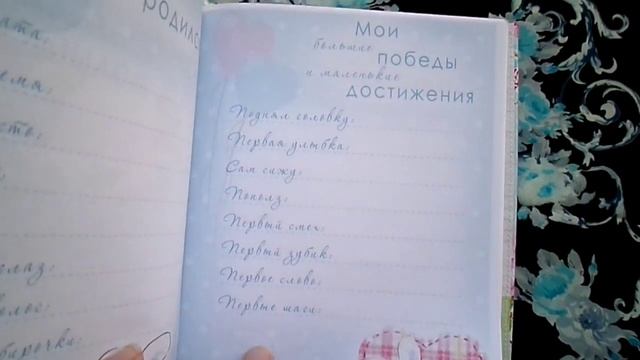 родилс
ата:
емя:
сто:
лаз:
олос:
бирочка:
Мои
большие
победы
и маленькие
достижения
Поднял головку:
Первая улыбка:
Сам сижу:
Пополз:
Первый смех:
Первый зубик:
Первое слово:
Первые шаги: